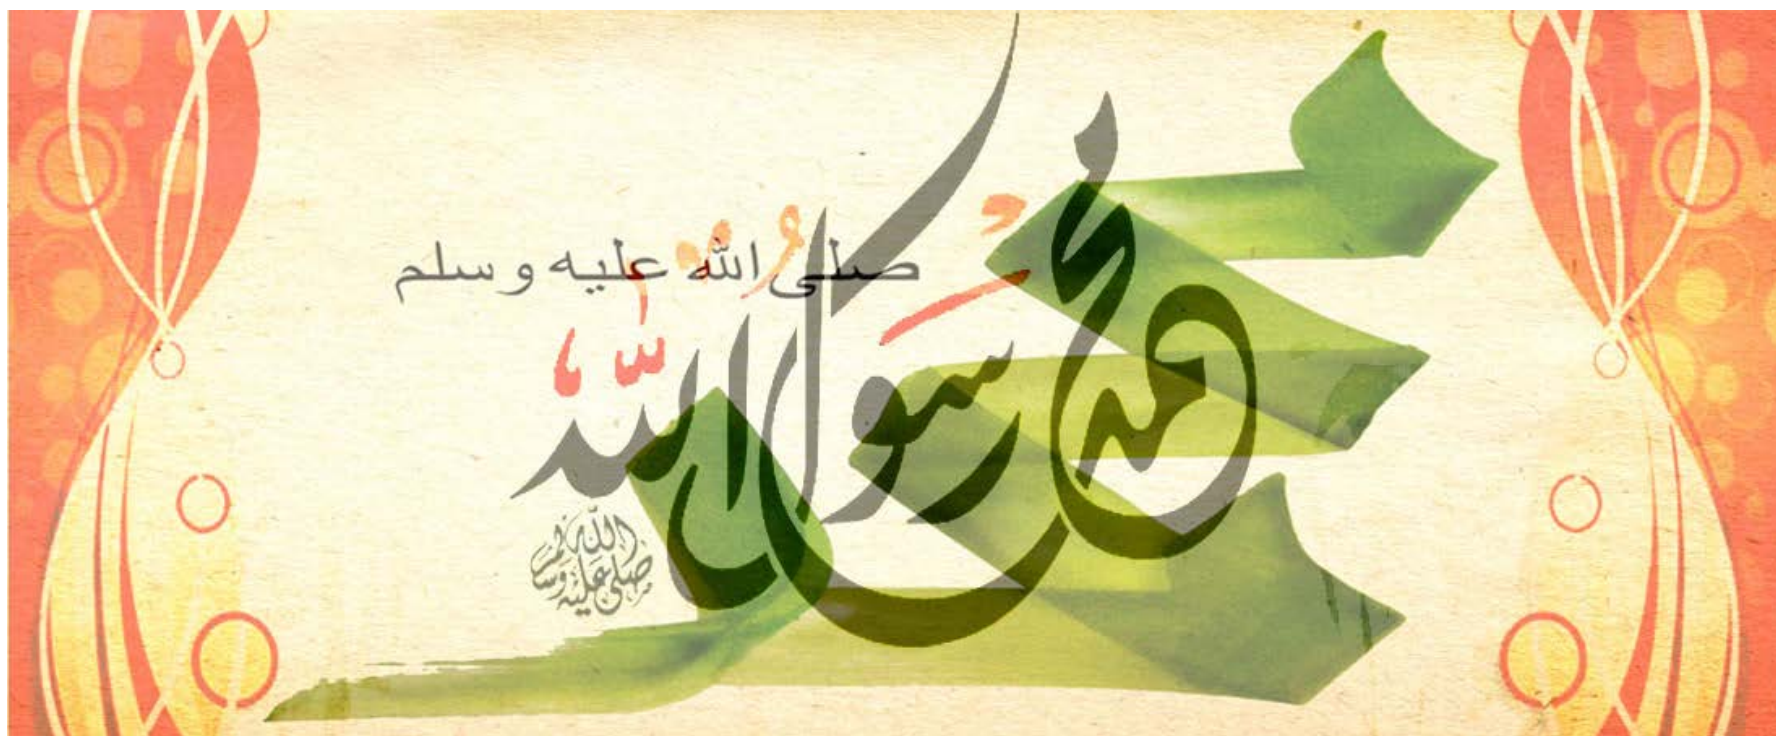 محمد
صلى الله عليه وسلم
محمد رَسُولُ اللّٰه
صلى الله عليه وسلم